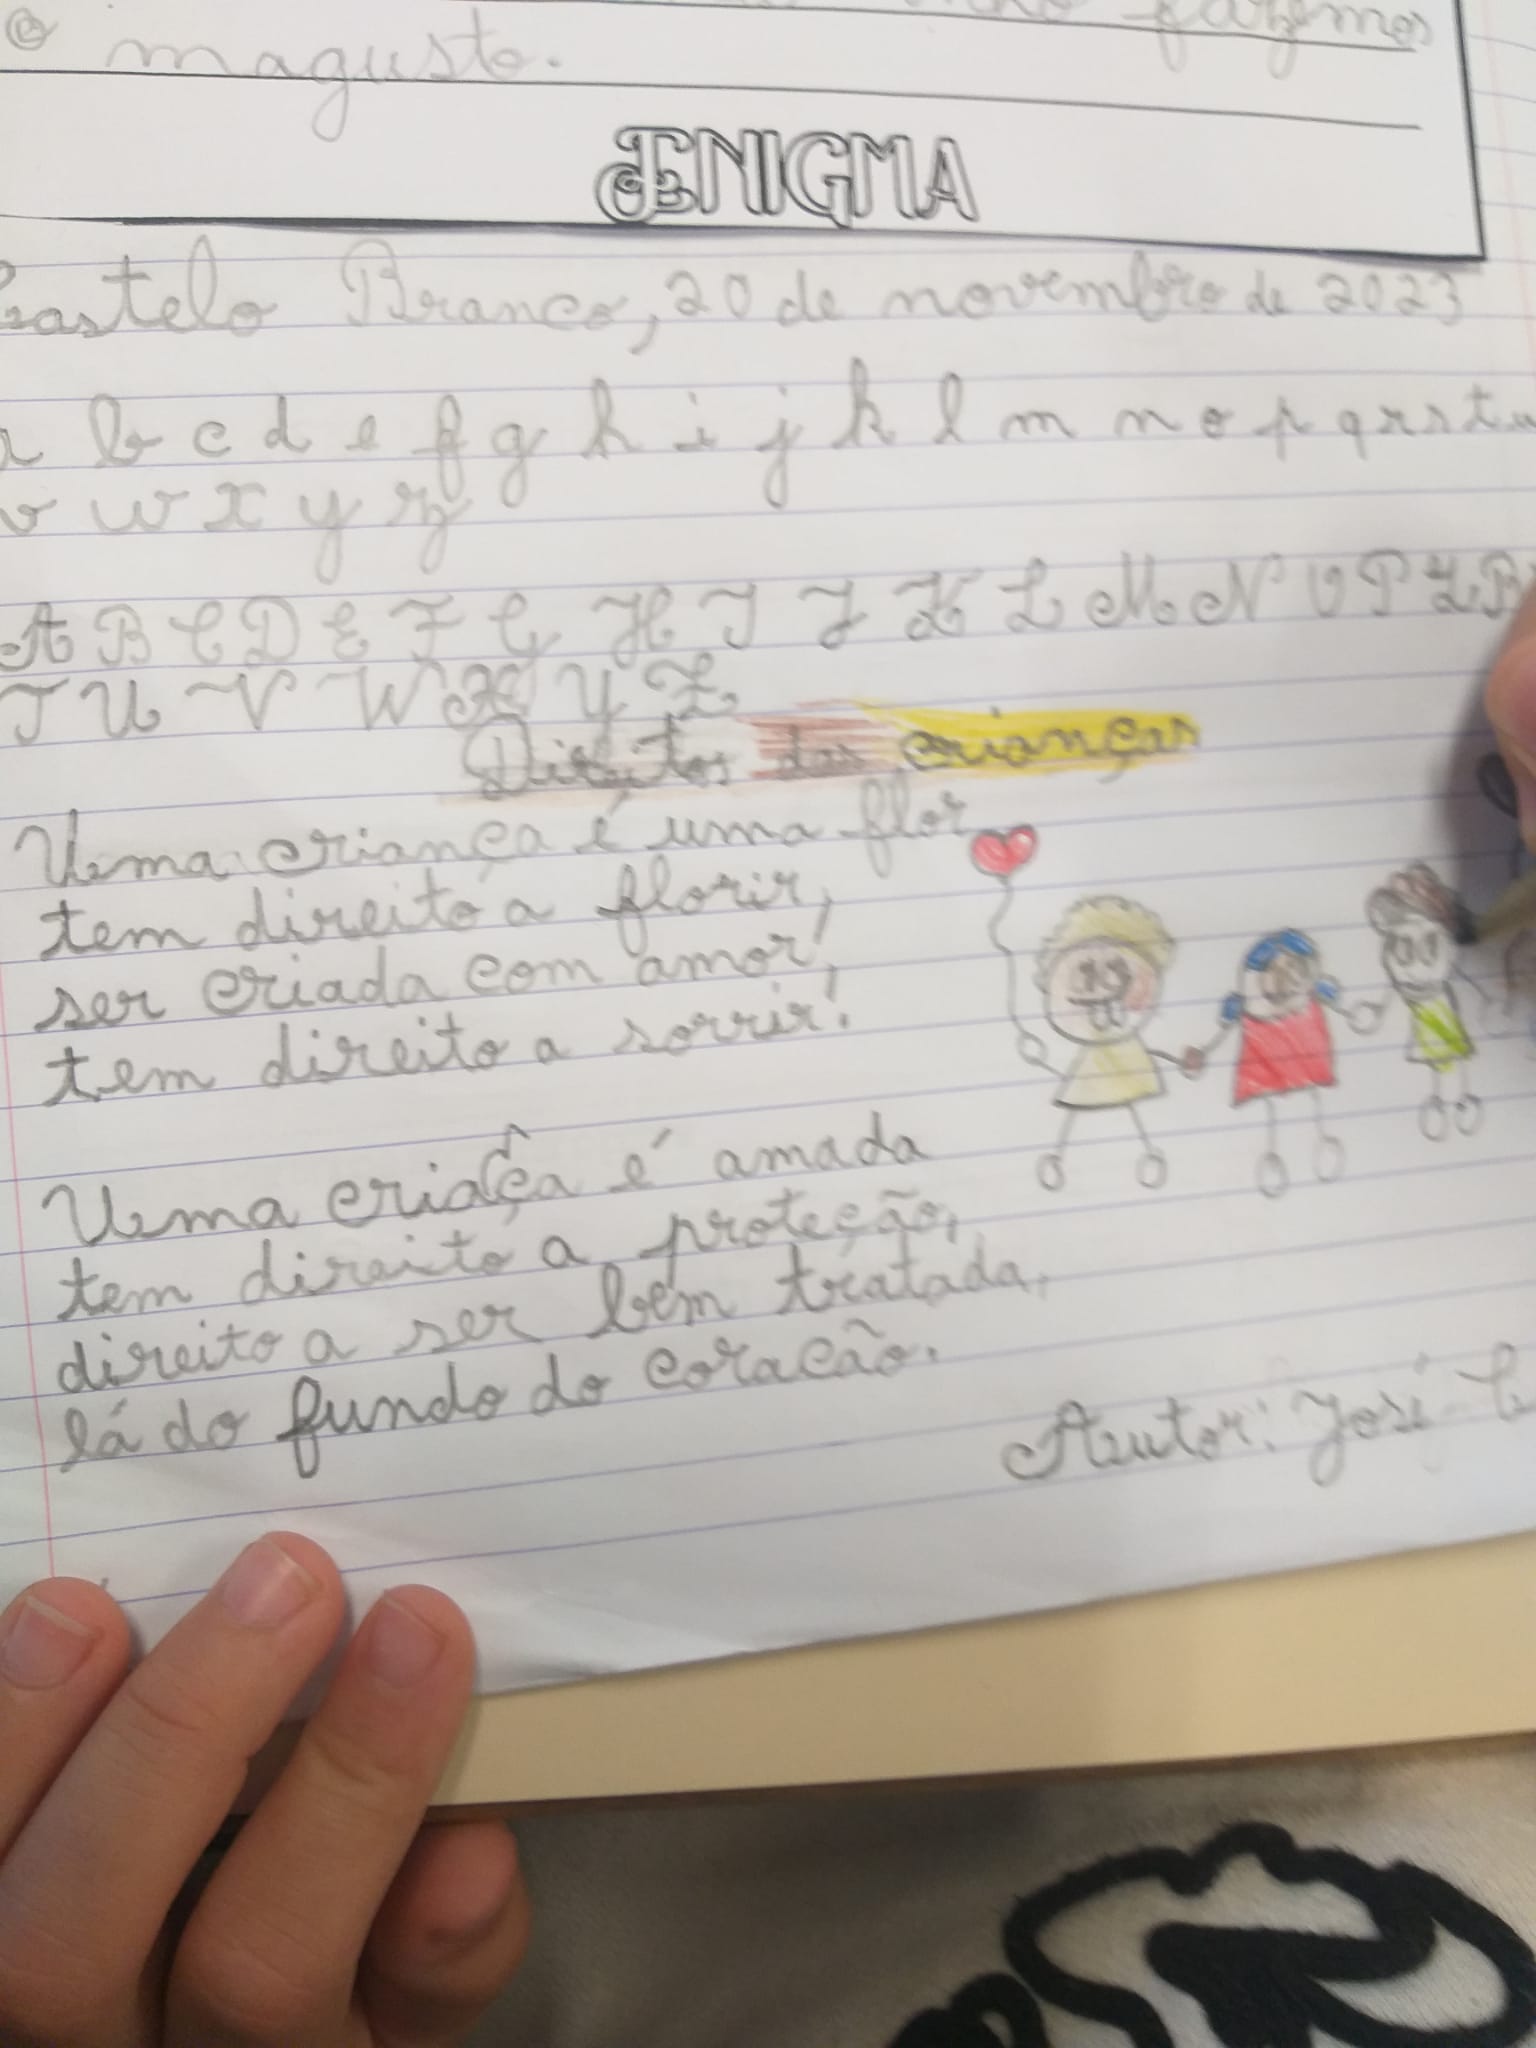 e magusto. fazemos
ENIGMA
Castelo Branco, 20 de novembro de 2023
a b c d e f g h i j k l m n o p q r s t u
v w x y z
A B C D E F G H I J K L M N O P Q R
T U V W X Y Z
Direitos das crianças
Uma criança é uma flor
tem direito a florir,
ser criada com amor,
tem direito a sorrir!
Uma criaça é amada
tem direito a proteção,
direito a ser bem tratada,
lá do fundo do coracão.
Autor: José C